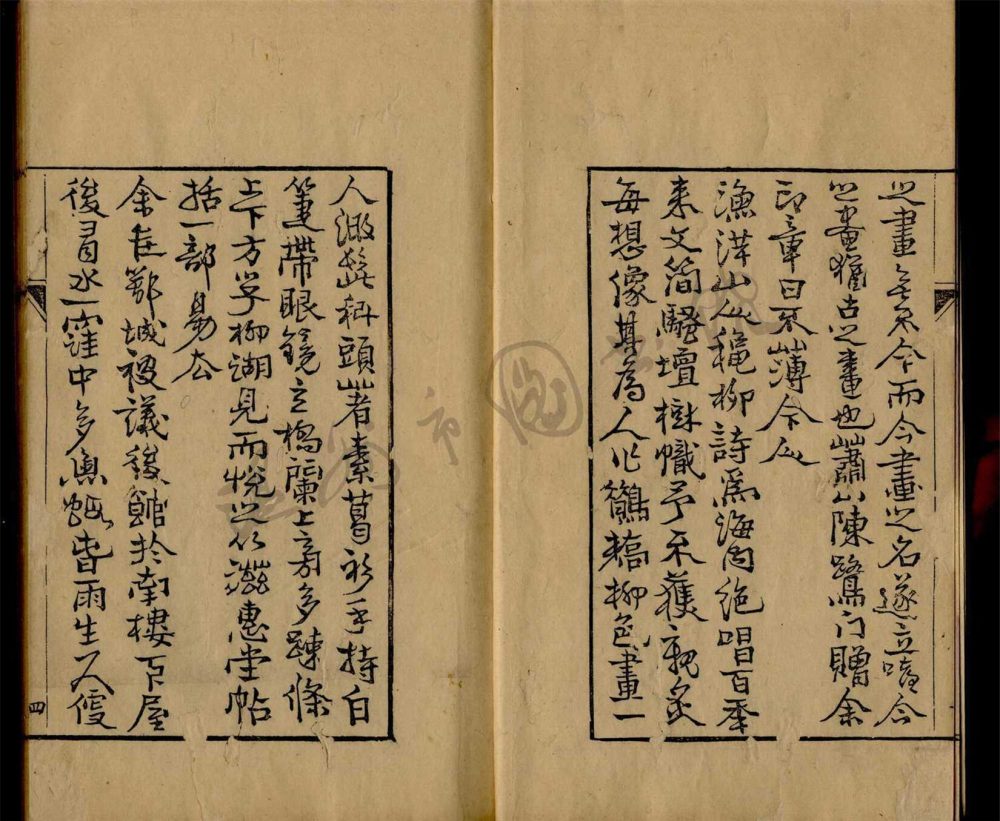 之畫無不今而今畫之名遂立噫今
之畫猶古之畫也蕭山陳鷺門贈余
印章曰不薄今人
漁洋山人穐柳詩為海內絶唱百年
来文簡騷壇樹幟予不獲親炙
每想像其為人作鸛鶴柳色畫一
人微髭科頭著素葛衫手持白
箑帶眼鏡立橋蘭上旁多疎條
上下方孚柳湖見而悅之以滋惠堂帖
括一部易去
余在鄒城被議後館於南樓下屋
後有水一窪中多魚蝦昔雨生又僾
四